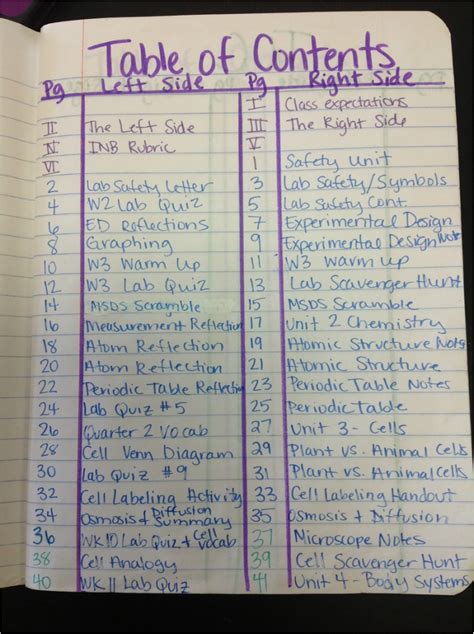 Table of Contents
Pg Left Side Pg Right Side
I Class expectations
II The Left Side III The Right Side
IV INB Rubric V
VI 1 Safety Unit
2 Lab Safety Letter 3 Lab Safety/Symbols
4 W2 Lab Quiz 5 Lab Safety Cont
6 ED Reflections 7 Experimental Design
8 Graphing 9 Experimental Design Notes
10 W3 Warm Up 11 W3 Warm up
12 W3 Lab Quiz 13 Lab Scavenger Hunt
14 MSDS Scramble 15 MSDS Scramble
16 Measurement Reflection 17 Unit 2 Chemistry
18 Atom Reflection 19 Atomic Structure Notes
20 Atom Reflection 21 Atomic Structure
22 Periodic Table Reflection 23 Periodic Table Notes
24 Lab Quiz #5 25 Periodic Table
26 Quarter 2 Vocab 27 Unit 3 - Cells
28 Cell Venn Diagram 29 Plant vs. Animal Cells
30 Lab Quiz #9 31 Plant vs. Animal Cells
32 Cell Labeling Activity 33 Cell Labeling Handout
34 Osmosis + Diffusion Summary 35 Osmosis + Diffusion
36 WK 10 Lab Quiz + Cell Vocab 37 Microscope Notes
38 Cell Analogy 39 Cell Scavenger Hunt
40 WK 11 Lab Quiz 41 Unit 4 - Body Systems